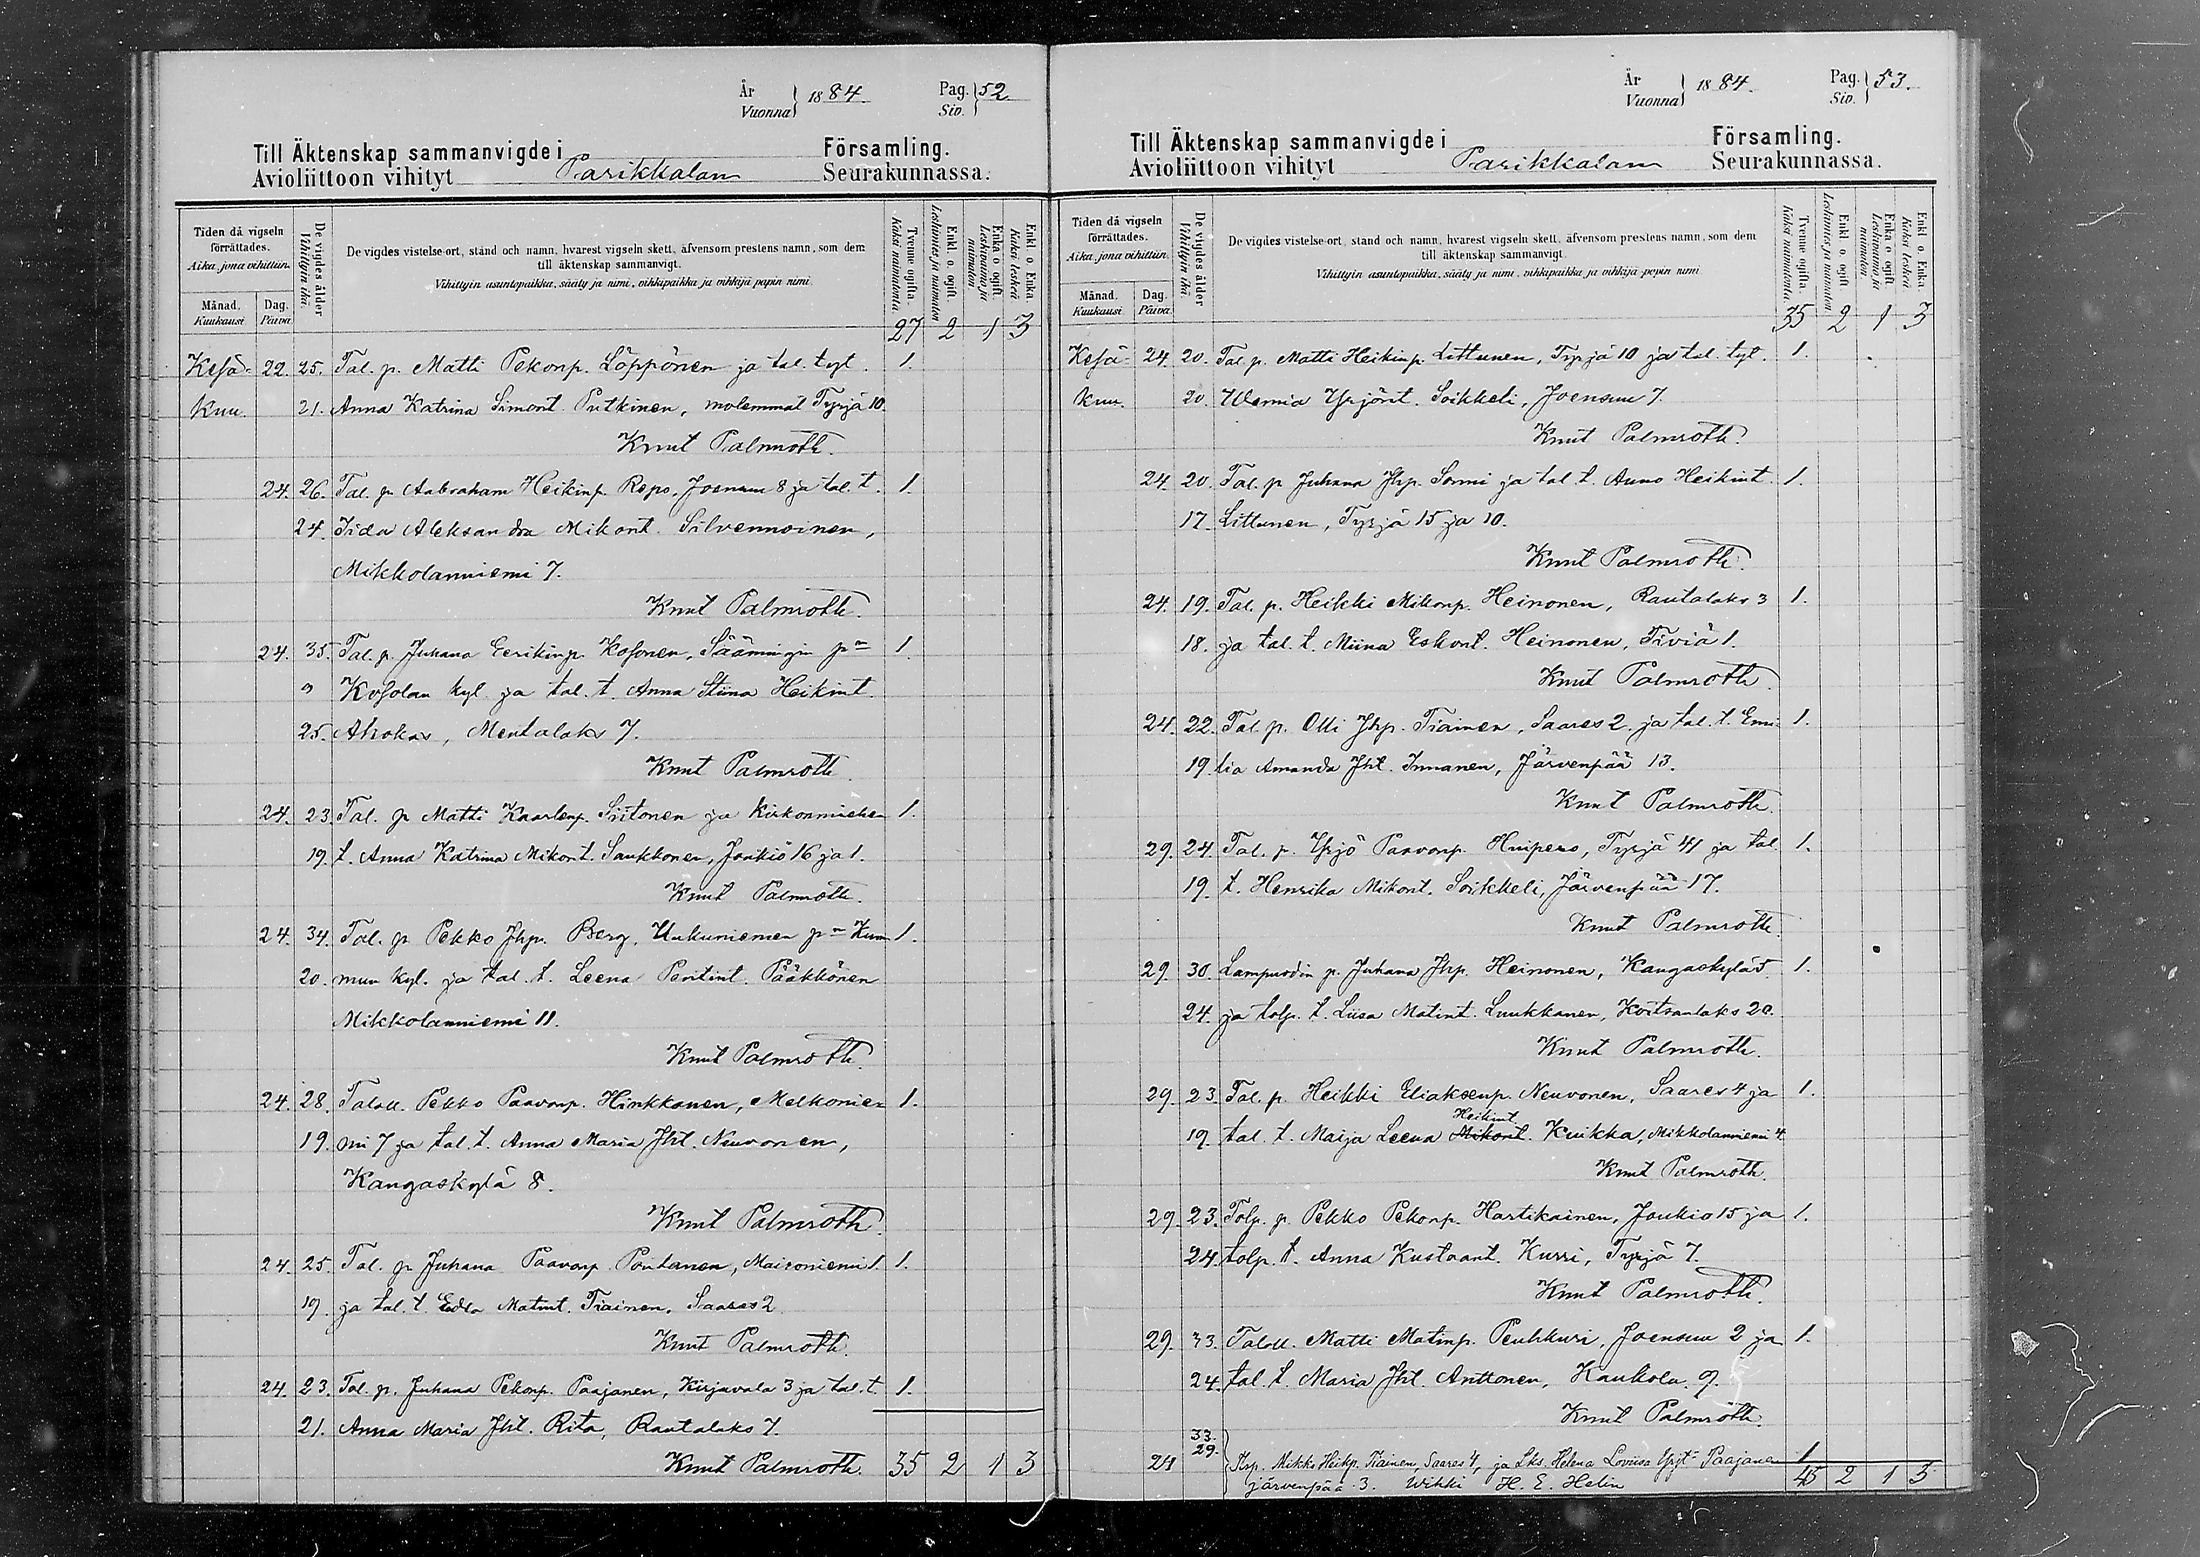 År
Vuonna 1884.
Pag.
Siv. 52.
Till Äktenskap sammanvigde i Församling.
Avioliittoon vihityt Parikkalan Seurakunnassa.
Tiden då vigseln
förrättades.
Aika, jona vihittiin.
Månad.
Kuukausi
Dag.
Päivä
De vigdes ålder
Vihittyin ikä.
De vigdes vistelse-ort, stånd och namn, hvarest vigseln skett, äfvensom prestens namn, som dem
till äktenskap sammanvigt.
Vihittyin asuntopaikka, sääty ja nimi, vihkipaikka ja vihkijä papin nimi.
Tvenne ogifta.
Kaksi naimatonta
Enkl. o. ogift.
Leskimies ja naimaton
Enka o. ogift.
Leskivaimo ja naimaton
Enkl. o. Enka.
Kaksi leskeä
27 2 1 3
Kesä- 22. 25. Tal. p. Matti Pekonp. Löppönen ja tal. tyt. 1.
kuu. 21. Anna Katrina Simont. Putkinen, molemmat Tyrjä 10.
Knut Palmroth.
24. 26. Tal. p. Aabraham Heikinp. Repo, Joensuu 8 ja tal. t. 1.
24. Iida Aleksandra Mikont. Silvennoinen,
Mikkolanniemi 7.
Knut Palmroth.
24. 35. Tal. p. Juhana Eerikinp. Kosonen, Säämingin p:n 1.
Kosolan kyl. ja tal. t. Anna Stina Heikint.
25. Ahokas, Mentalaks 7.
Knut Palmroth.
24. 23. Tal. p. Matti Kaarlenp. Siitonen ja kirkonmiehen 1.
19. t. Anna Katrina Mikont. Saukkonen, Joukio 16 ja 1.
Knut Palmroth.
24. 34. Tal. p. Pekko Jhp. Berg, Uukuniemen p:n Kum- 1.
20. mun kyl. ja tal. t. Leena Pentint. Pääkkönen
Mikkolanniemi 11.
Knut Palmroth.
24. 28. Taloll. Pekko Paavonp. Hinkkanen, Melkonie- 1.
19. mi 7 ja tal. t. Anna Maria Jht. Neuvonen,
Kangaskylä 8.
Knut Palmroth.
24. 25. Tal. p. Juhana Paavonp. Pontanen, Maironiemi 1 1.
19. ja tal. t. Edla Matint. Tiainen, Saares 2
Knut Palmroth.
24. 23. Tal. p. Juhana Pekonp. Paajanen, Kirjavala 3 ja tal. t. 1.
21. Anna Maria Jht. Rita, Rautalaks 7.
Knut Palmroth. 35 2 1 3
År
Vuonna 1884.
Pag.
Siv. 53.
Till Äktenskap sammanvigde i Församling.
Avioliittoon vihityt Parikkalan Seurakunnassa.
Tiden då vigseln
förrättades.
Aika, jona vihittiin.
Månad.
Kuukausi
Dag.
Päivä.
De vigdes ålder
Vihittyin ikä.
De vigdes vistelse-ort, stånd och namn, hvarest vigseln skett, äfvensom prestens namn, som dem
till äktenskap sammanvigt.
Vihittyin asuntopaikka, sääty ja nimi, vihkipaikka ja vihkijä papin nimi
Tvenne ogifta.
Kaksi naimatonta.
Enkl. o. ogift
Leskimies ja naimaton
Enka o ogift
Leskivaimo ja naimaton
Enkl. o. Enka.
Kaksi leskeä
35 2 1 3
Kesä- 24. 20. Tal. p. Matti Heikinp. Littunen, Tyrjä 10 ja tal. tyt. 1.
kuu. 20. Wernia Yrjönt. Soikkeli, Joensuu 7.
Knut Palmroth.
24. 20. Tal. p. Juhana Jhp. Sormi ja tal. t. Anna Heikint. 1.
17. Littunen, Tyrjä 15 ja 10.
Knut Palmroth.
24. 19. Tal. p. Heikki Mikonp. Heinonen, Rautalaks 3 1.
18. ja tal. t. Miina Eskont. Heinonen, Tiviä 1.
Knut Palmroth.
24. 22. Tal. p. Olli Jhp. Tiainen, Saares 2. ja tal. t. Emi- 1.
19 lia Amanda Jht. Innanen, Järvenpää 13.
Knut Palmroth.
29. 24. Tal. p. Yrjö Paavonp. Huipero, Tyrjä 41 ja tal. 1.
19. t. Henrika Mikont. Soikkeli, Järvenpää 17.
Knut Palmroth.
29. 30. Lampuodin p. Juhana Jhp. Heinonen, Kangaskylä 5 1.
24. ja tolp. t. Liisa Matint. Luukkanen, Koitsanlaks 20.
Knut Palmroth.
29. 23. Tal. p. Heikki Eliaksenp. Neuvonen, Saares 4 ja 1.
Heikint.
19. tal. t. Maija Leena Mikont. Kuikka, Mikkolanniemi 4.
Knut Palmroth.
29. 23. Tolp. p. Pekko Pekonp. Hartikainen, Joukio 15 ja 1.
24. tolp. t. Anna Kustaant. Kurri, Tyrjä 7.
Knut Palmroth.
29. 33. Taloll. Matti Matinp. Peuhkuri, Joensuu 2 ja 1.
24. tal. t. Maria Jht. Anttonen, Kaukola 9.
Knut Palmroth.
33.
29.
24 Mikko Heikp. Tiainen, Saares 4, ja Lks. Helena Loviisa Yrjt. Paajanen 1
järvenpää 3. Wihki H. E. Helin 45 2 1 3